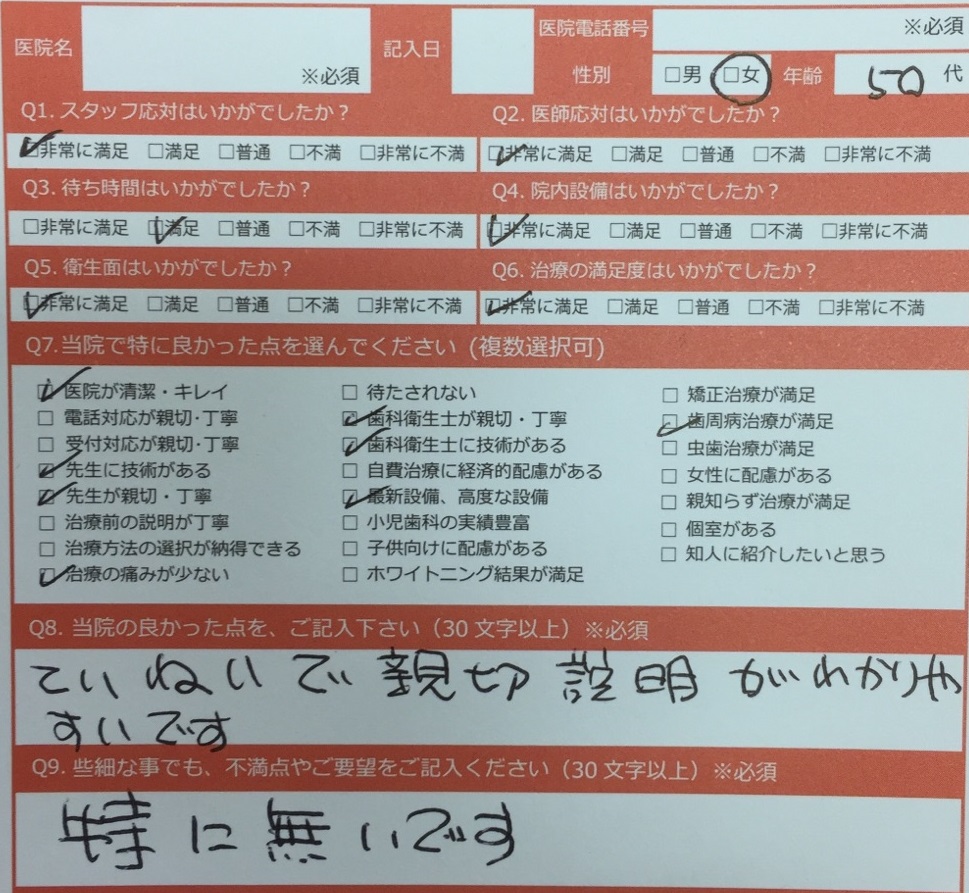 医院名 ※必須 記入日 医院電話番号 ※必須
性別 □男 □女 年齢 50 代
Q1. スタッフ応対はいかがでしたか？ Q2. 医師応対はいかがでしたか？
□非常に満足 □満足 □普通 □不満 □非常に不満 □非常に満足 □満足 □普通 □不満 □非常に不満
Q3. 待ち時間はいかがでしたか？ Q4. 院内設備はいかがでしたか？
□非常に満足 □満足 □普通 □不満 □非常に不満 □非常に満足 □満足 □普通 □不満 □非常に不満
Q5. 衛生面はいかがでしたか？ Q6. 治療の満足度はいかがでしたか？
□非常に満足 □満足 □普通 □不満 □非常に不満 □非常に満足 □満足 □普通 □不満 □非常に不満
Q7.当院で特に良かった点を選んでください (複数選択可)
□ 医院が清潔・キレイ □ 待たされない □ 矯正治療が満足
□ 電話対応が親切･丁寧 □ 歯科衛生士が親切・丁寧 □ 歯周病治療が満足
□ 受付対応が親切･丁寧 □ 歯科衛生士に技術がある □ 虫歯治療が満足
□ 先生に技術がある □ 自費治療に経済的配慮がある □ 女性に配慮がある
□ 先生が親切・丁寧 □ 最新設備、高度な設備 □ 親知らず治療が満足
□ 治療前の説明が丁寧 □ 小児歯科の実績豊富 □ 個室がある
□ 治療方法の選択が納得できる □ 子供向けに配慮がある □ 知人に紹介したいと思う
□ 治療の痛みが少ない □ ホワイトニング結果が満足
Q8. 当院の良かった点を、ご記入下さい（30 文字以上）※必須
ていねいで親切説明がわかりや
すいです
Q9. 些細な事でも、不満点やご要望をご記入ください（30 文字以上）※必須
特に無いです